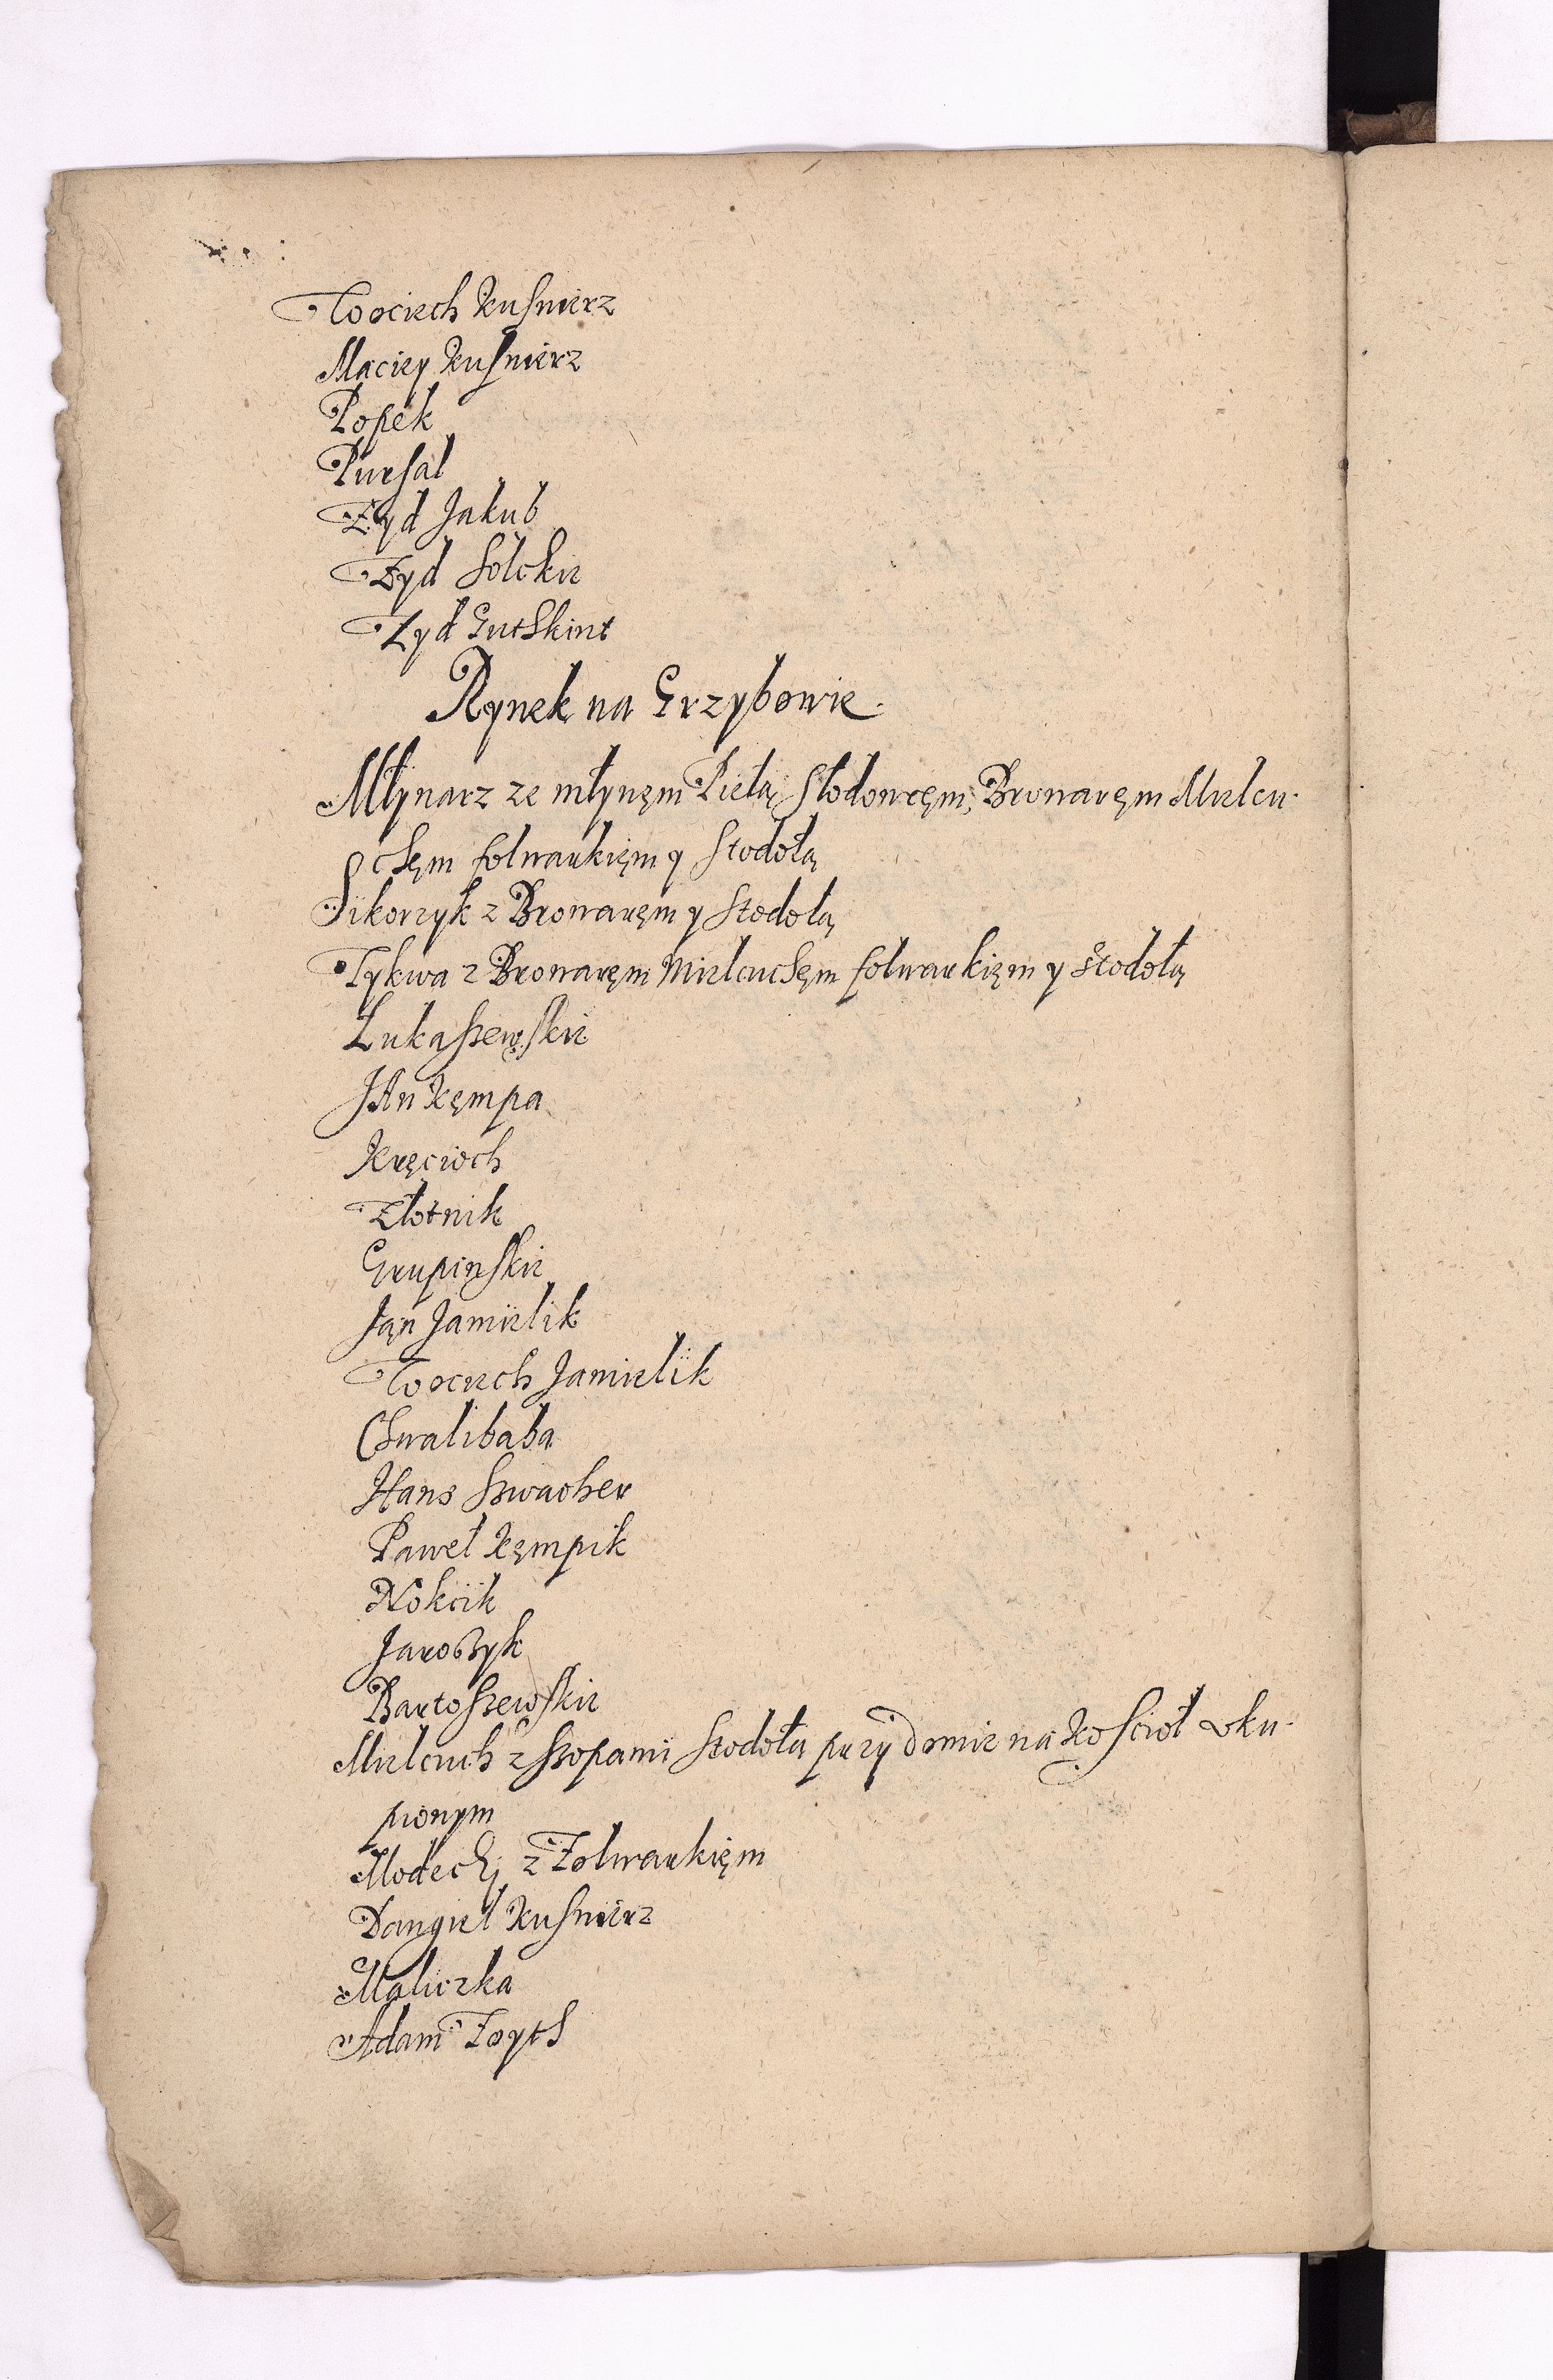 Woyciech Kuśnierz
Maciey Kuśnierz
Popek
Pursal
Zyd Jakub
Zyd Solckie
Zyd Gutskint
Rynek na Grzybowie.
Młynarz ze młynęm Piełą Słodowręm, Browaręm Mielcu-
chęm folwarkięm y Stodołą
Sikorzyk z Browaręm y Stodołą
Tykwa z Browaręm Mielcuchęm folwarkięm y Stodołą
Łukaszewskie
JAn Kęmpa
Kręcioch
Złotnik
Grupinskie
Jan Jamielik
Woyciech Jamielik
Chwalibaba
Hans Szwacher
Paweł Kęmpik
Nokcik
Jaroszyk
Bartoszewskie
Mielcuch z Szopami Stodołą przy domie na Kościoł oku-
pionym
Modecki z Folwarkięm
Dangiel Kuśnierz
Maliczka
Adam Foyth